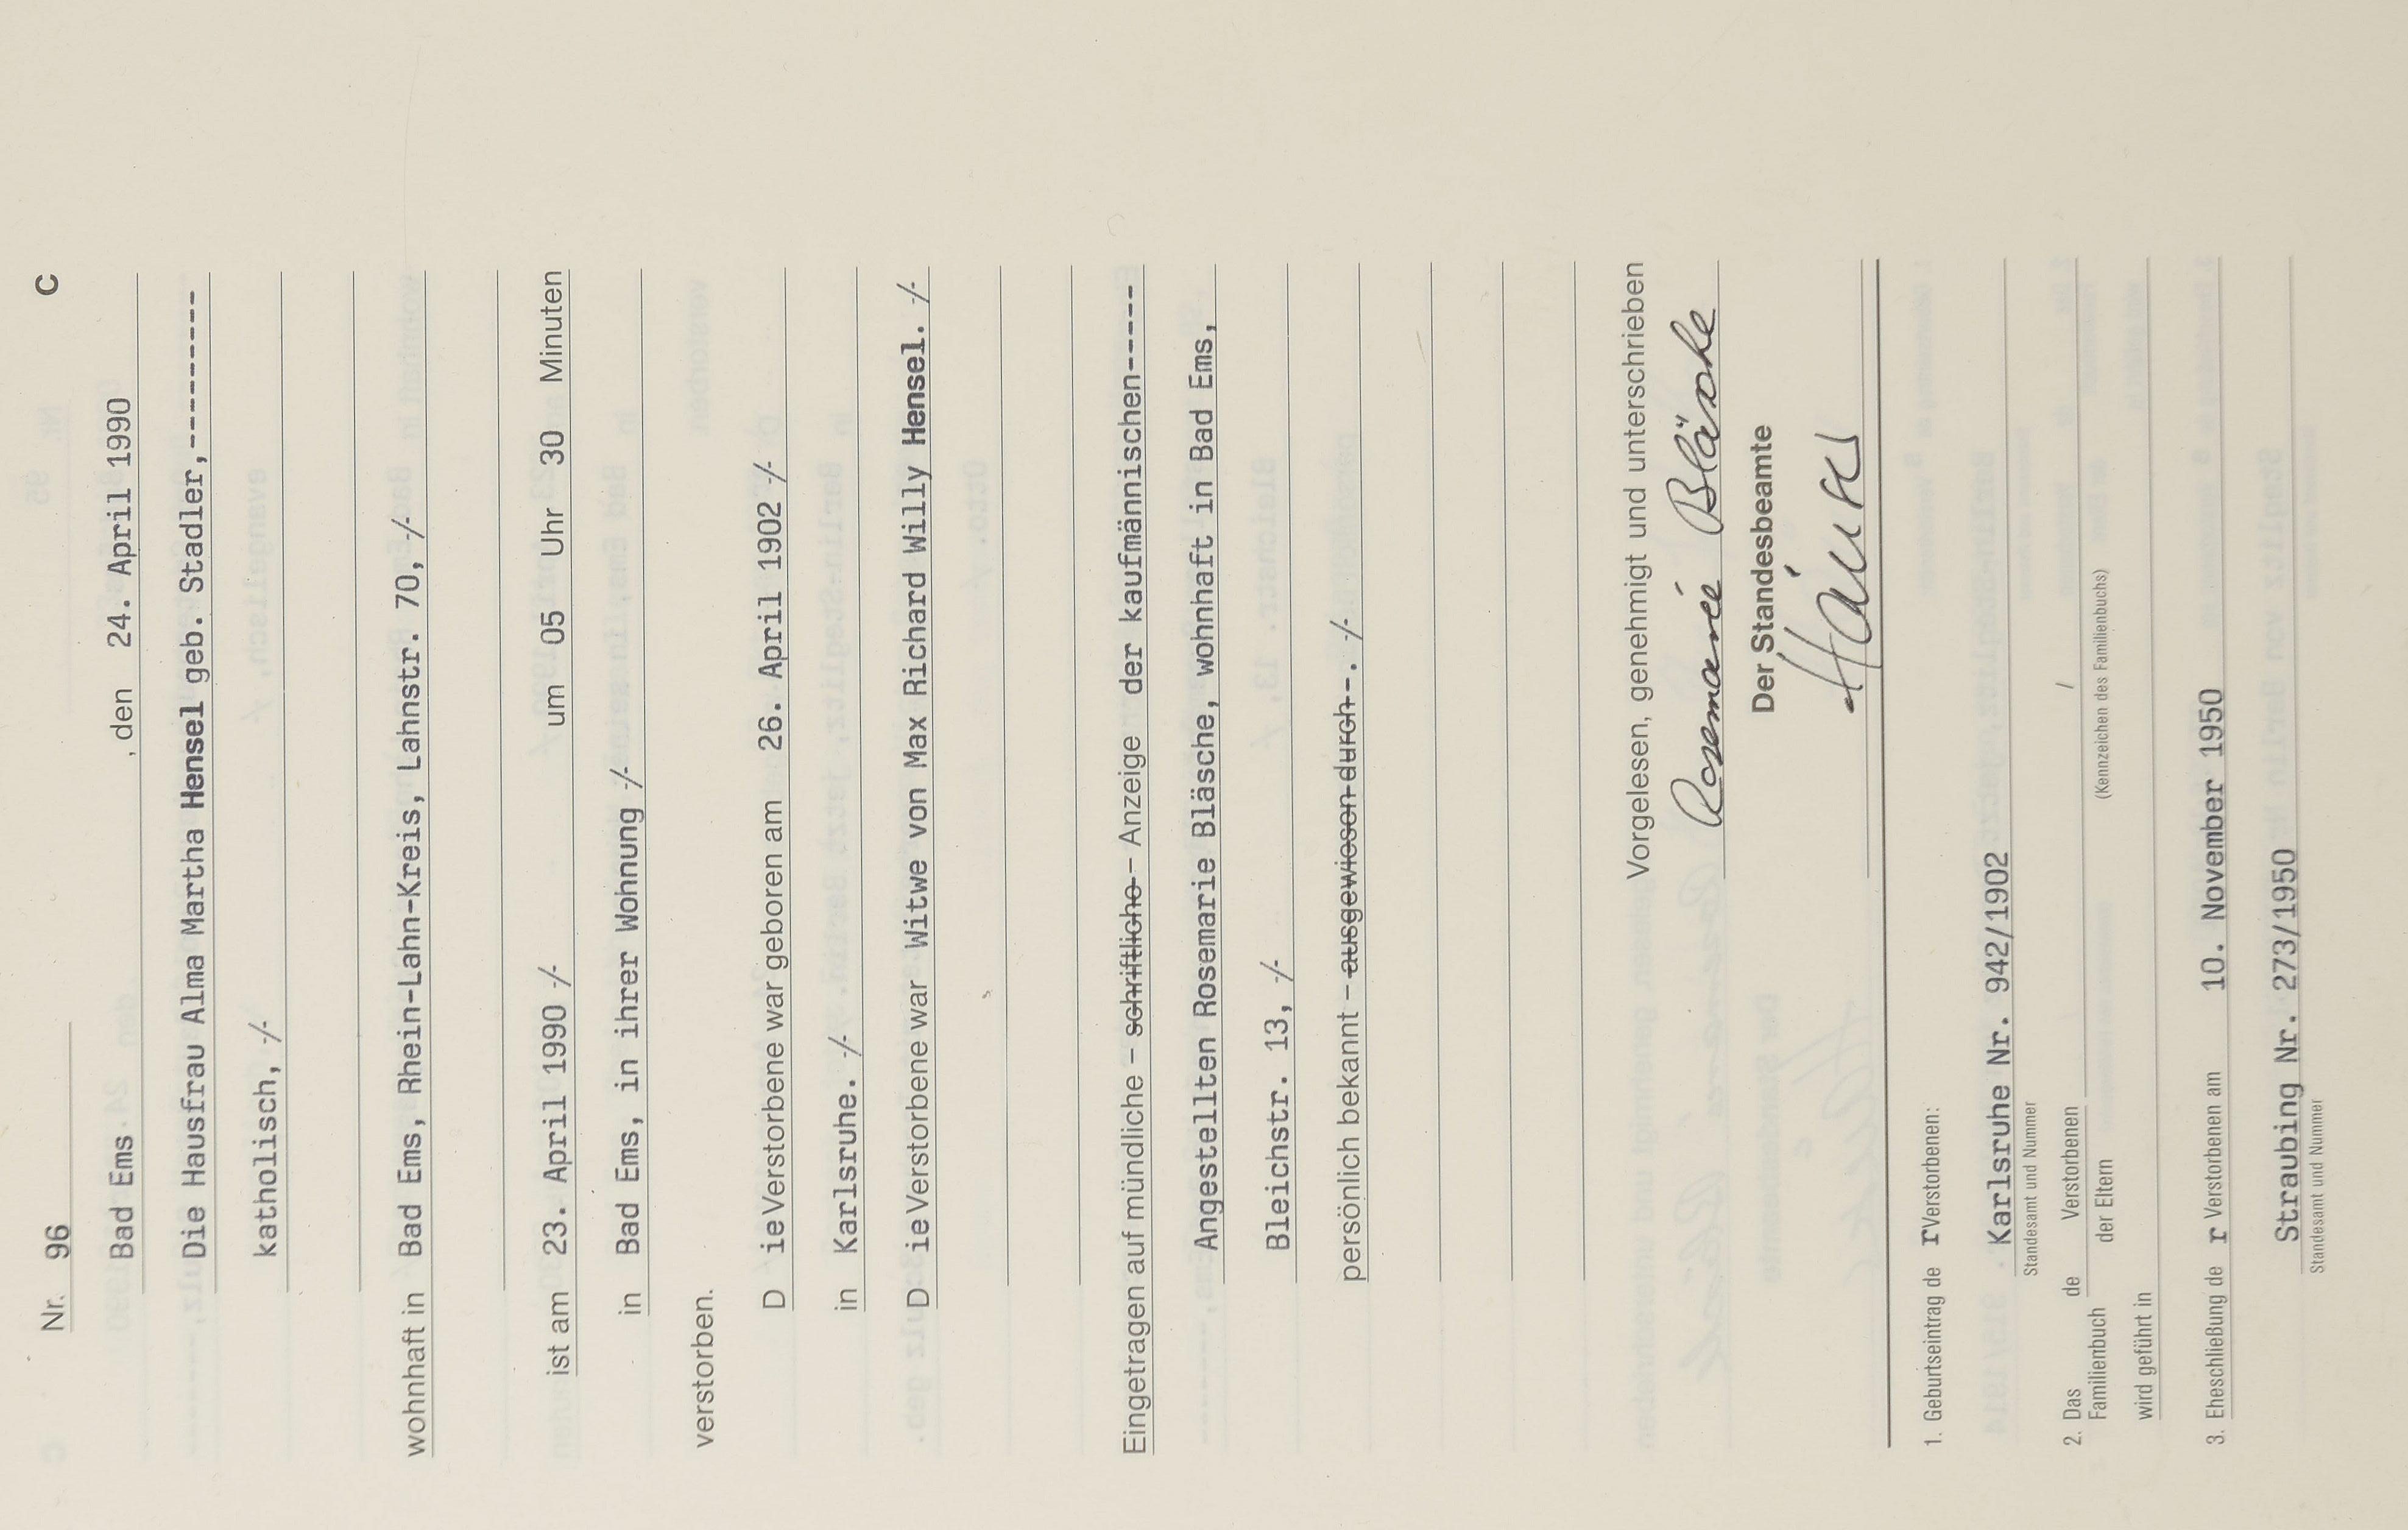 C
Nr. 96
Bad Ems , den 24. April 1990
Die Hausfrau Alma Martha Hensel geb. Stadler,----------
katholisch, -/-
wohnhaft in Bad Ems, Rhein-Lahn-Kreis, Lahnstr. 70, -/-
ist am 23. April 1990 -/- um 05 Uhr 30 Minuten
in Bad Ems, in ihrer Wohnung -/-
verstorben.
D ieVerstorbene war geboren am 26. April 1902 -/-
in Karlsruhe. -/-
D ieVerstorbene war Witwe von Max Richard Willy Hensel. -/-
Eingetragen auf mündliche – schriftliche – Anzeige der kaufmännischen-----
Angestellten Rosemarie Bläsche, wohnhaft in Bad Ems,
Bleichstr. 13, -/-
persönlich bekannt – ausgewiesen durch -. -/-
Vorgelesen, genehmigt und unterschrieben
Rosemarie Bläsche
Der Standesbeamte
1. Geburtseintrag de rVerstorbenen:
Karlsruhe Nr. 942/1902
Standesamt und Nummer
2. Das Familienbuch de Verstorbenen /
der Eltern (Kennzeichen des Familienbuchs)
wird geführt in
3. Eheschließung de r Verstorbenen am 10. November 1950
Straubing Nr. 273/1950
Standesamt und Nummer